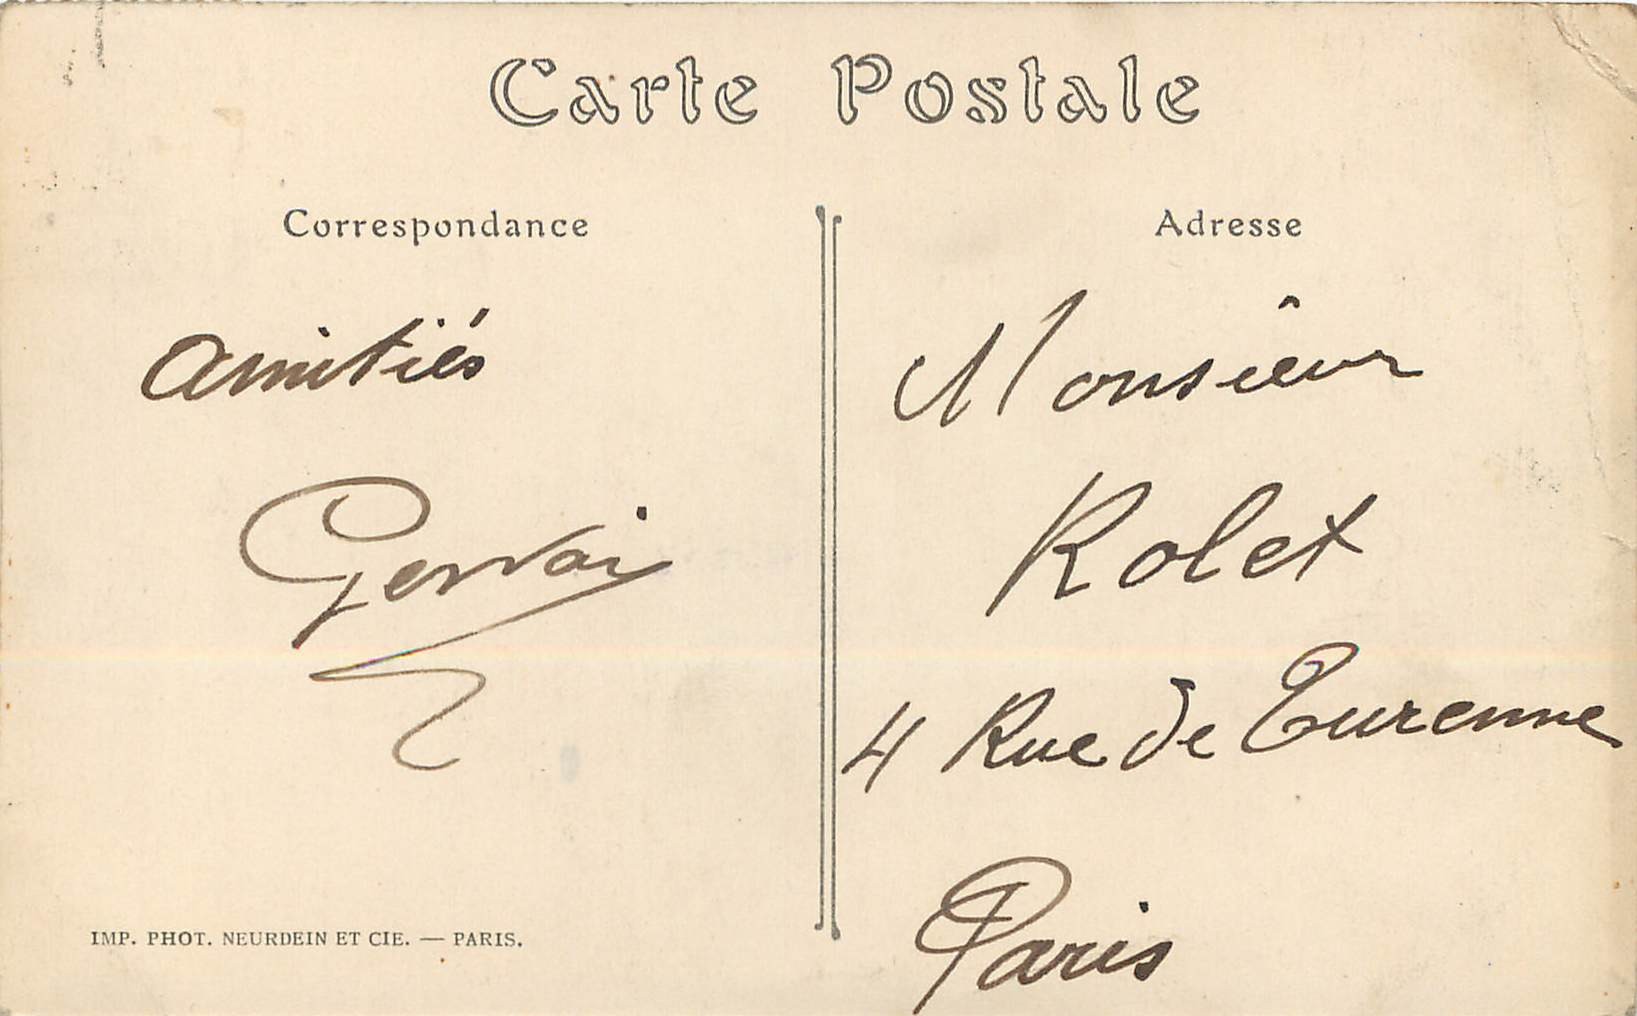 Carte Postale
Correspondance
amitiés
Gervais
IMP. PHOT. NEURDEIN ET CIE. — PARIS.
Adresse
Monsieur
Rolet
4 Rue de Turenne
Paris